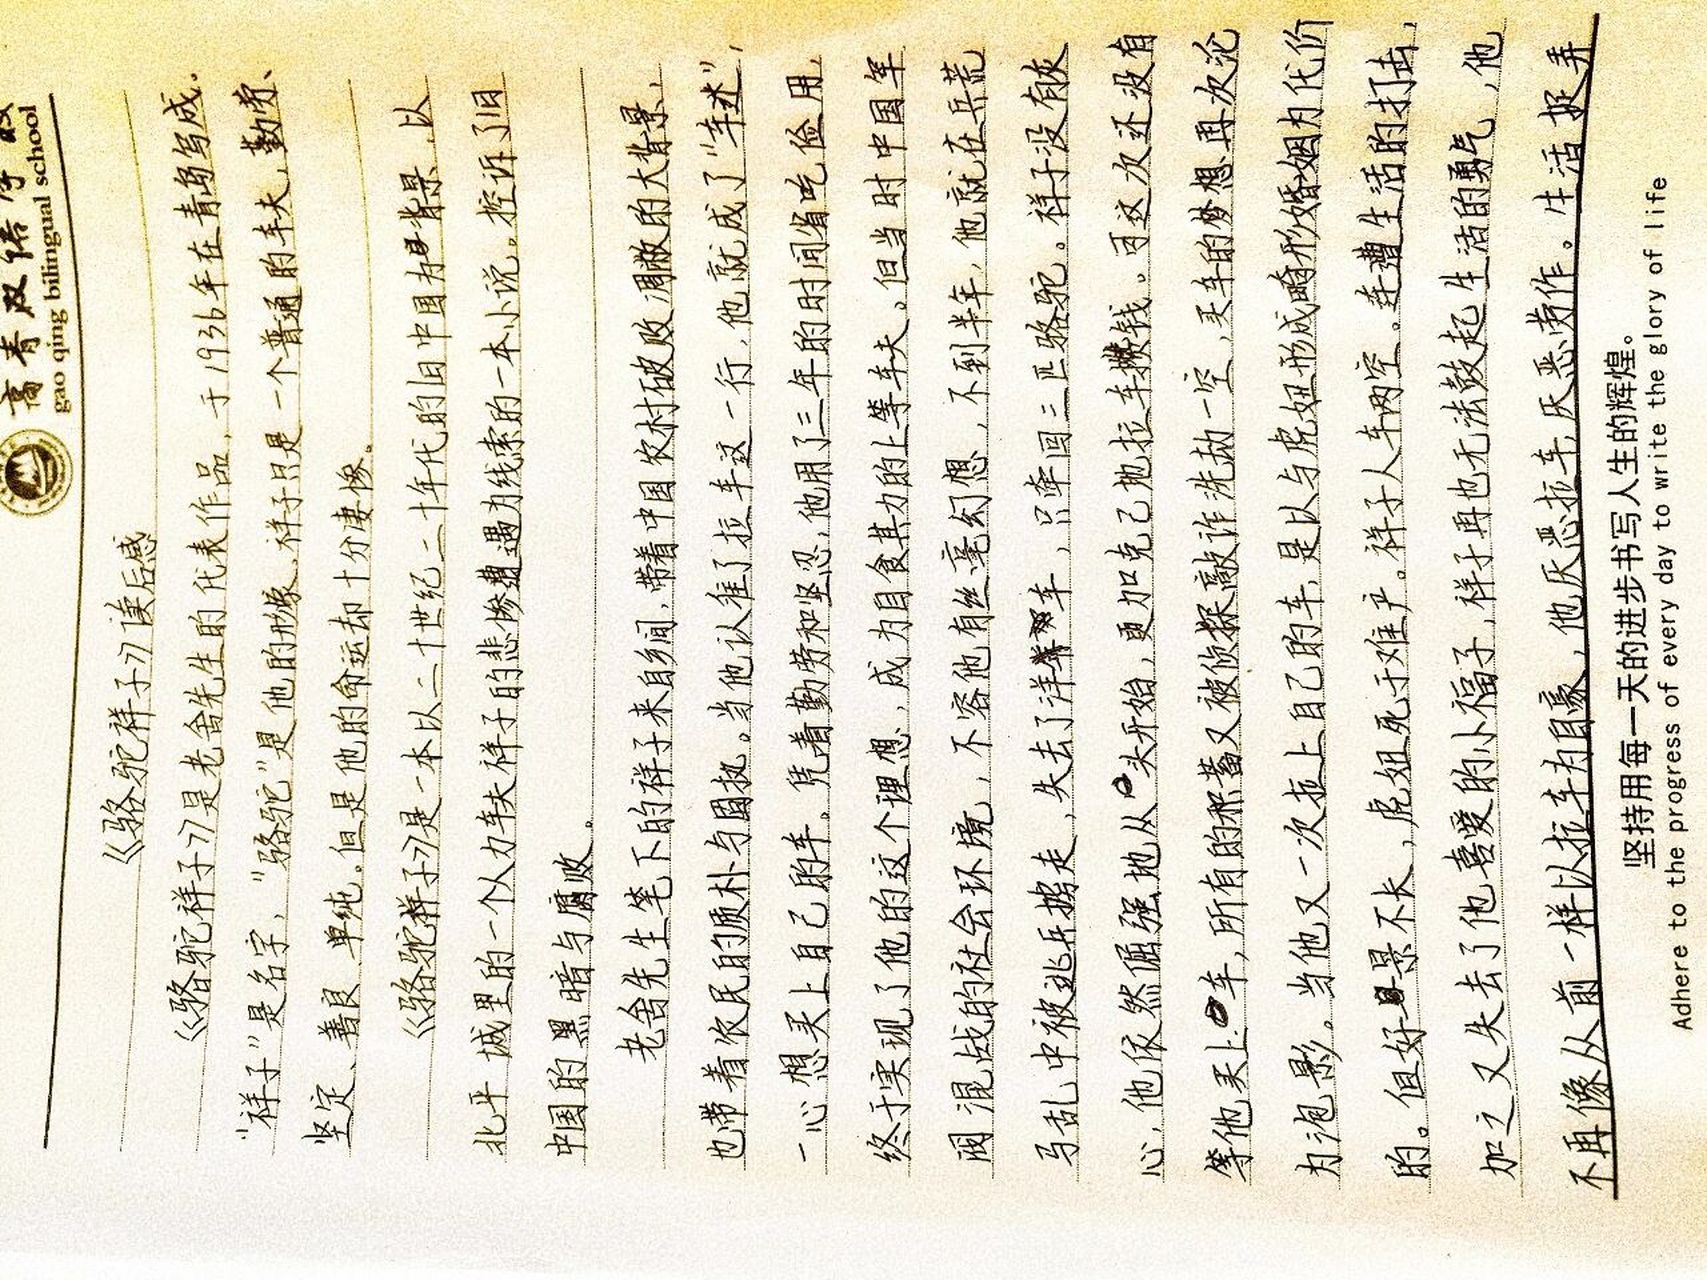 高青双语学校
gao qing bilingual school
《骆驼祥子》读后感
《骆驼祥子》是老舍先生的代表作品,于1936年在青岛写成.
“祥子”是名字,“骆驼”是他的形象.祥子只是一个普通的车夫,勤劳、
坚定、善良、单纯.但是他的命运却十分凄惨。
《骆驼祥子》是一本以二十世纪二十年代的旧中国为背景,以
北平城里的一个人力车夫祥子的悲惨遭遇为线索的一本小说.控诉了旧
中国的黑暗与腐败。
老舍先生笔下的祥子来自乡间,带着中国农村破败凋敝的大背景,
也带着农民的质朴与固执。当他认准了拉车这一行,他就成了“车迷”,
一心想买上自己的车。凭着勤劳和坚忍,他用了三年的时间省吃俭用,
终于实现了他的这个理想,成为自食其力的上等车夫。但当时中国军
阀混战的社会环境,不容他有丝毫幻想,不到半年,他就在兵荒
马乱中被逃兵掳走,失去了洋车,只牵回三匹骆驼。祥子没有灰
心,他依然倔强地从头开始,更加克己地拉车攒钱。可这次还没有
等他买上车,所有的积蓄又被侦探敲诈洗劫一空,买车的梦想再次沦
为泡影。当他又一次拉上自己的车,是以与虎妞形成畸形婚姻为代价
的。但好景不长,虎妞死于难产。祥子人车两空。连遭生活的打击,
加之又失去了他喜爱的小福子,祥子再也无法鼓起生活的勇气,他
不再像从前一样以拉车为自豪,他厌恶拉车,厌恶劳作。生活捉弄
坚持用每一天的进步书写人生的辉煌。
Adhere to the progress of every day to write the glory of life